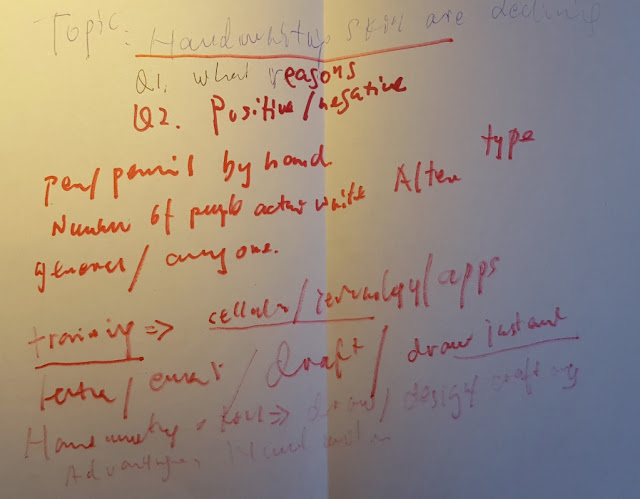 Topic: Handwriting skill are declining
Q1. what reasons
Q2. Positive/negative
pen/pencil by hand. type
Number of people write After
general/anyone.
training => cellular/technology/apps
/ email / draft / draw instant
tool => draw/ design/ crafting
Advantages